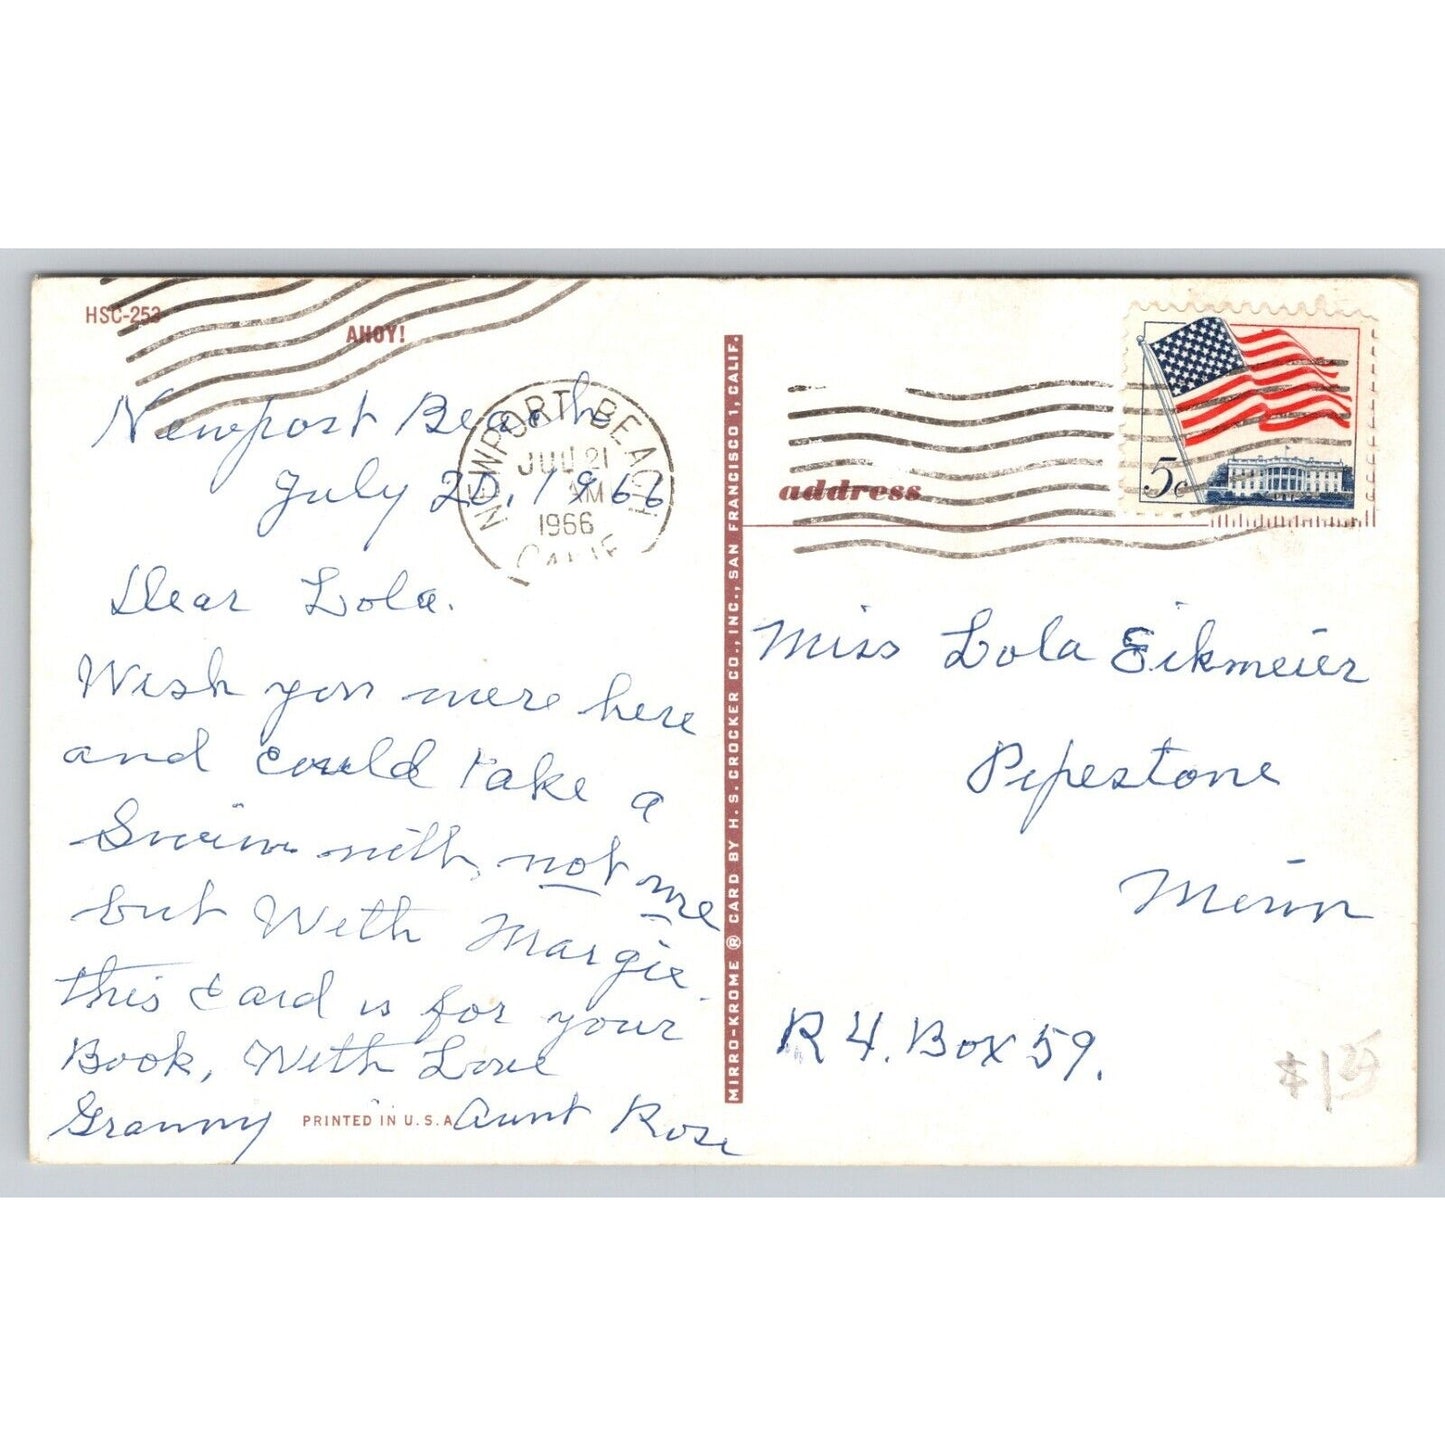 HSC-253
AHOY!
Newport Beach
July 20, 1966
NEWPORT BEACH
JUL 21
AM
1966
CALIF
Dear Lola.
Wish you were here
and could take a
Swim with, not me
but With Margie.
this card is for your
Book, With Love
Granny
PRINTED IN U.S.A
Aunt Rose
MIRRO-KROME ® CARD BY H. S. CROCKER CO., INC., SAN FRANCISCO 1, CALIF.
5c
address
Miss Lola Eikmeier
Pipestone
Minn
R 4. Box 59.
$1.25